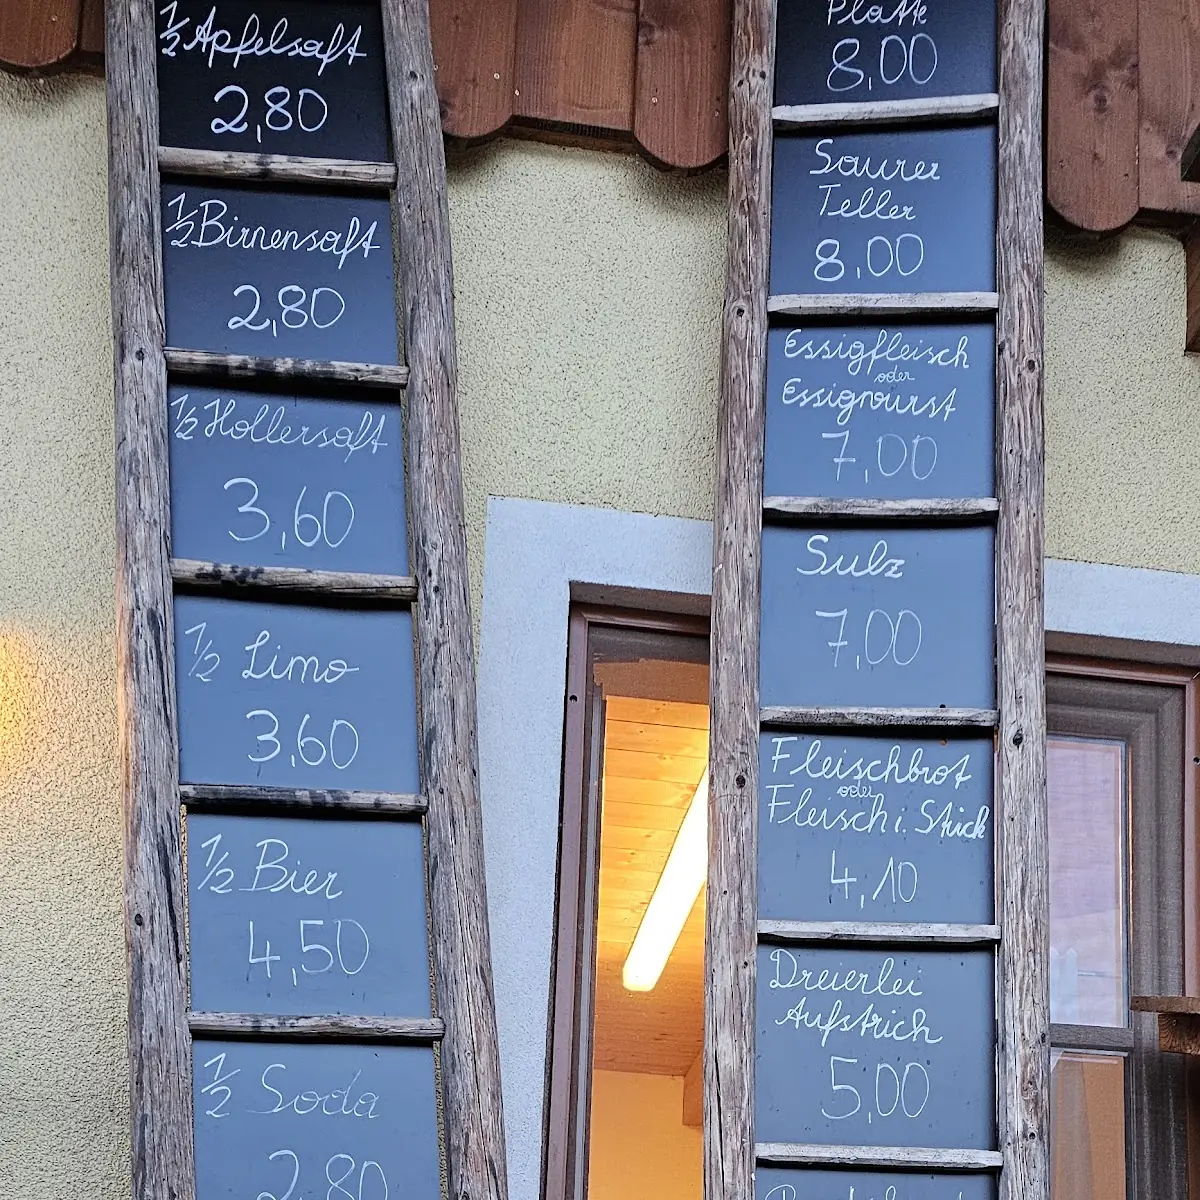 ½ Apfelsaft
2,80
½ Birnensaft
2,80
½ Hollersaft
3,60
½ Limo
3,60
½ Bier
4,50
½ Soda
2,80
Platte
8,00
Saurer
Teller
8,00
Essigfleisch
oder
Essigwurst
7,00
Sulz
7,00
Fleischbrot
oder
Fleisch i. Stück
4,10
Dreierlei
Aufstrich
5,00